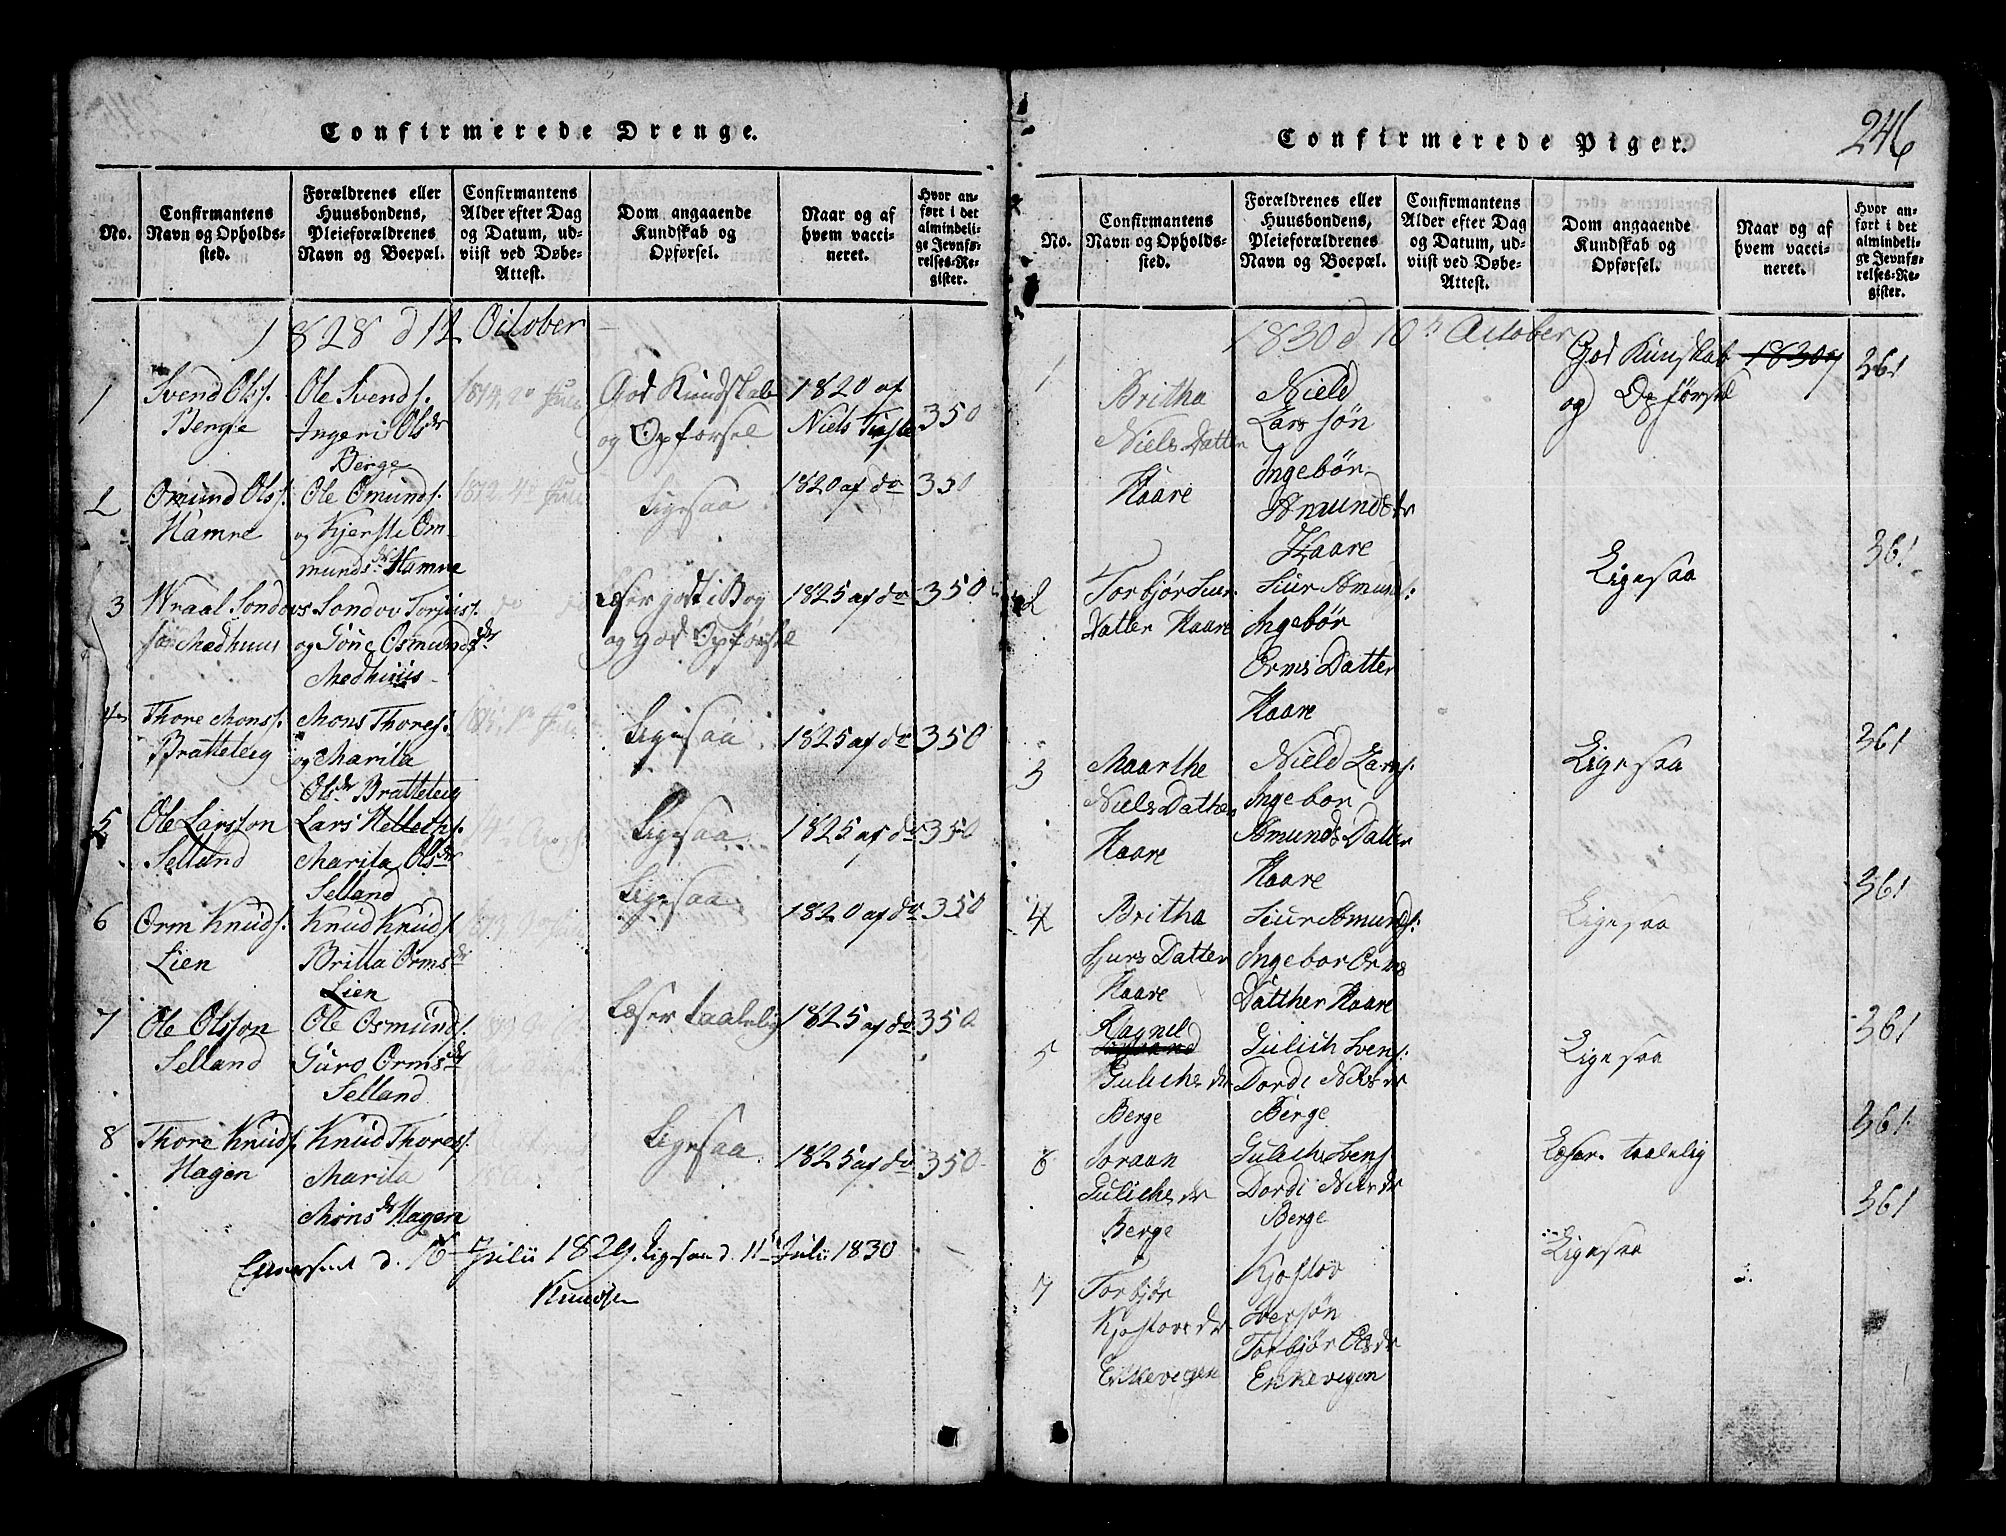 Confirmerede Drenge.
No.
Confirmantens
Navn og Opholds-
sted.
Forældrenes eller
Huusbondens,
Pleieforældrenes
Navn og Boepæl.
Confirmantens
Alder efter Dag
og Datum, ud-
viist ved Døbe-
Attest.
Dom angaaende
Kundskab og
Opførsel.
Naar og af
hvem vacci-
neret.
Hvor an-
ført i det
almindeli-
ge Jevnfø-
relses-Re-
gister.
1828 d 12 October
1
Svend Ols.
Berge
Ole Svends.
Ingeri Olsdr
Berge
God Kundskab
og Opførsel
1820 af
Niels
350
2
Omund Ols.
Hamre
Ole Omunds.
og Kjersti Om-
mundsdr Hamre
Ligesaa
1820 af do
350
3
Wraal Sondovs
Medhuus
Sondov Torjus.
og Gone Osmundsdr
Medhuus
Læser godt i Bog
og god Opførsel
1825 af do
350
4
Thore Mons.
Bratteteig
Mons Thores.
og Marita
Olsdr Bratteteig
Ligesaa
1825 af do
350
5
Ole Larsson
Selland
Lars Helleths.
Marita Olsdr
Selland
Ligesaa
1825 af do
350
6
Orm Knuds.
Lien
Knud Knuds.
Britta Ormsdr
Lien
Ligesaa
1820 af do
350
7
Ole Olsson
Selland
Ole Osmunds.
Guro Ormsdr
Selland
Læser taalelig
1825 af do
350
8
Thore Knuds.
Hagen
Knud Thores.
Marita
Monsdr Hagen
Ligesaa
1825 af do
350
d. 16 Julii 1829. Ligesaa d. 11 Julii 1830
Knudsen
246
Confirmerede Piger.
No.
Confirmantens
Navn og Opholds-
sted.
Forældrenes eller
Huusbondens,
Pleieforældrenes
Navn og Boepæl.
Confirmantens
Alder efter Dag
og Datum, ud-
viist ved Døbe-
Attest.
Dom angaaende
Kundskab og
Opførsel.
Naar og af
hvem vacci-
neret.
Hvor an-
ført i det
almindeli-
ge Jevnfø-
relses-Re-
gister.
1830 d 10 October
1
Britha
Niels Datter
Haare
Nield
Lars søn
Ingebør
Amundsdr
Haare
God Kunskab
og Opførsel
1830
361
2
Torbjør Siur
Datter Haare
Siur Amunds:
Ingebør
Orms Datter
Haare
Ligesaa
361
3
Maarthe
Niels Dather
Haare
Nield Lars:
Ingebor
Amunds Datter
Haare
Ligesaa
361
4
Britha
Sjurs Datter
Haare
Siur Amunds:
Ingebor Orms
Datther Haare
Ligesaa
361
5
Ragnel
Gulichs dr
Berge
Gulich Svens:
Dordi Niels dr
Berge
Ligesaa
361
6
Joraan
Gulichs dr
Berge
Gulich Svens
Dordi Niels dr
Berge
Læser taalelig
361
7
Torbjør
Kjostovs dr
Enkevegen
Kjostov
Iversøn
Torbjør Ols dr
Enkevegen
Ligesaa
361